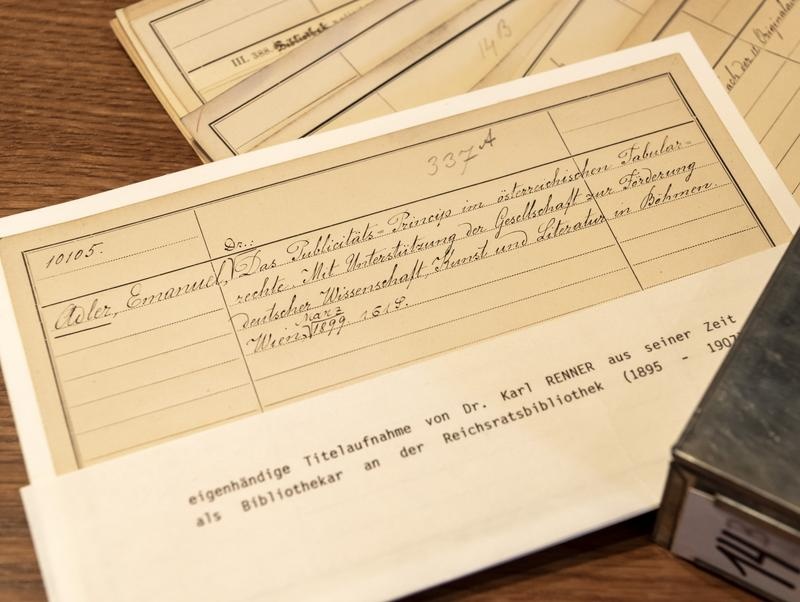 III. 388. Bibliothek
14B
nach der II. Original
337 A
10105.
Dr.:
Adler, Emanuel,
Das Publicitäts-Princip im österreichischen Tabular-
rechte. Mit Unterstützung der Gesellschaft zur Förderung
deutscher Wissenschaft, Kunst und Literatur in Böhmen.
März
Wien, 1899 161 S.
eigenhändige Titelaufnahme von Dr. Karl RENNER aus seiner Zeit
als Bibliothekar an der Reichsratsbibliothek (1895 - 1907
14